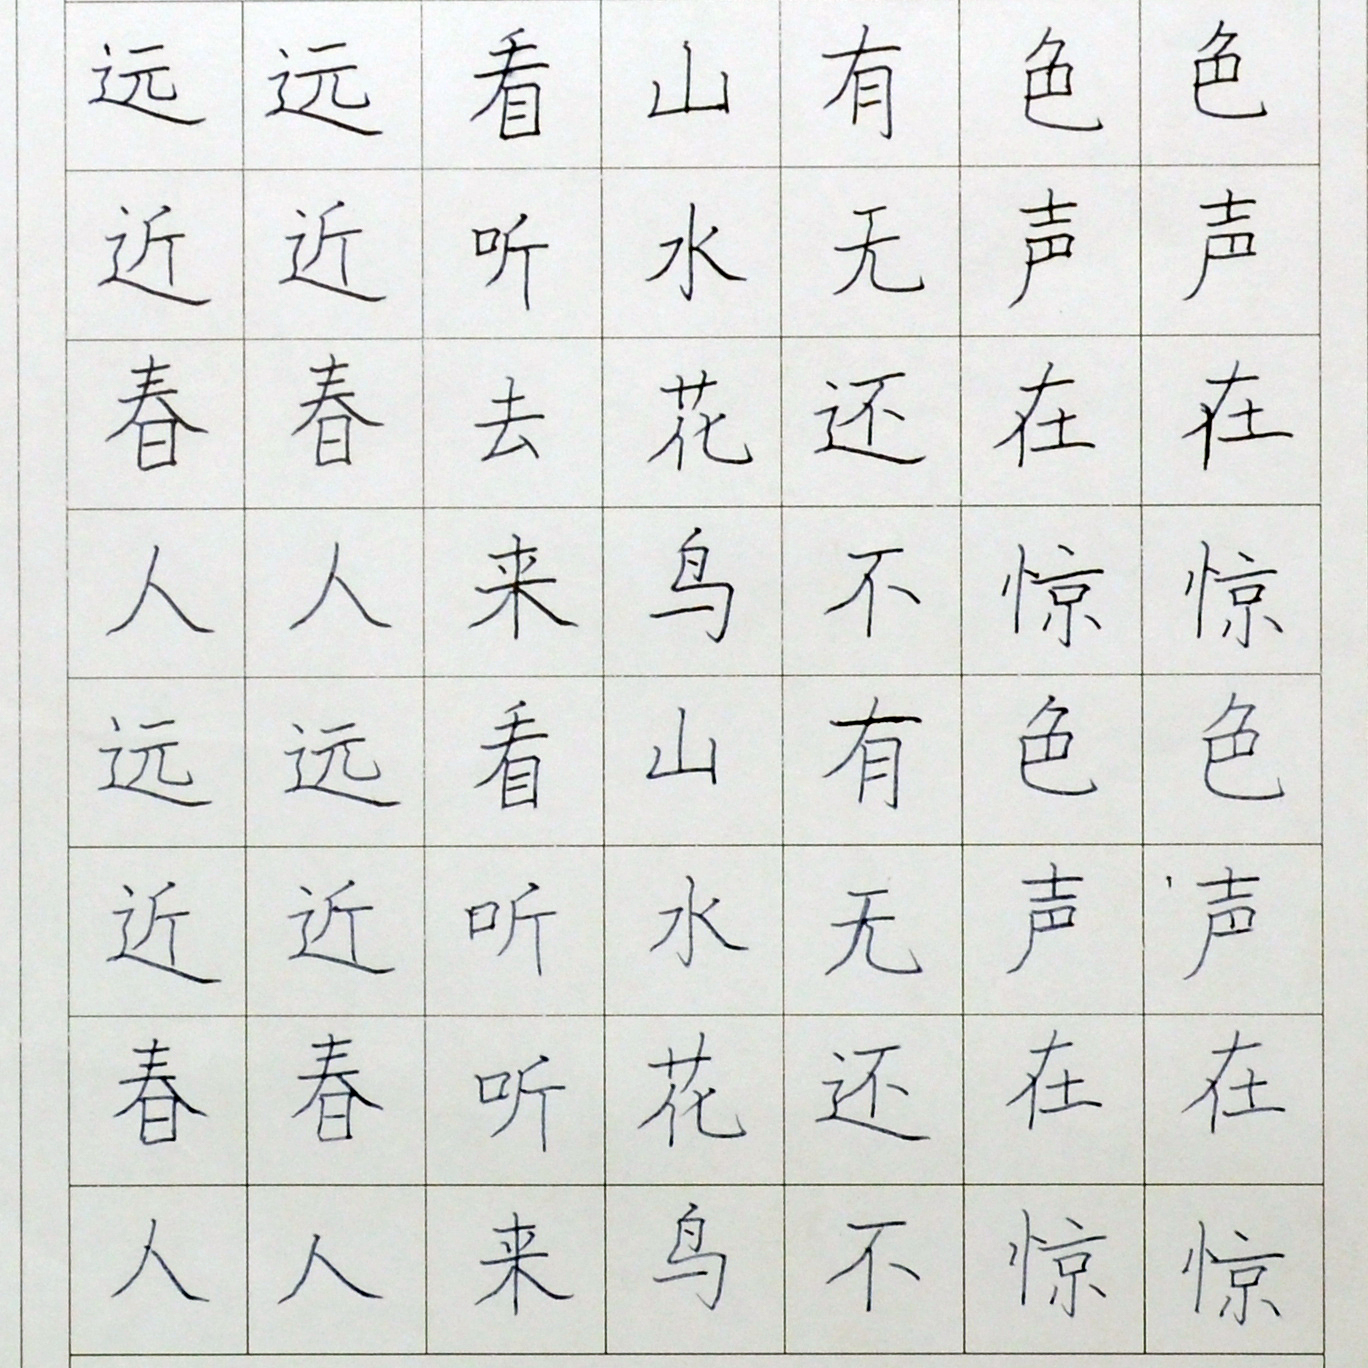 远远看山有色色
近近听水无声声
春春去花还在在
人人来鸟不惊惊
远远看山有色色
近近听水无声声
春春听花还在在
人人来鸟不惊惊